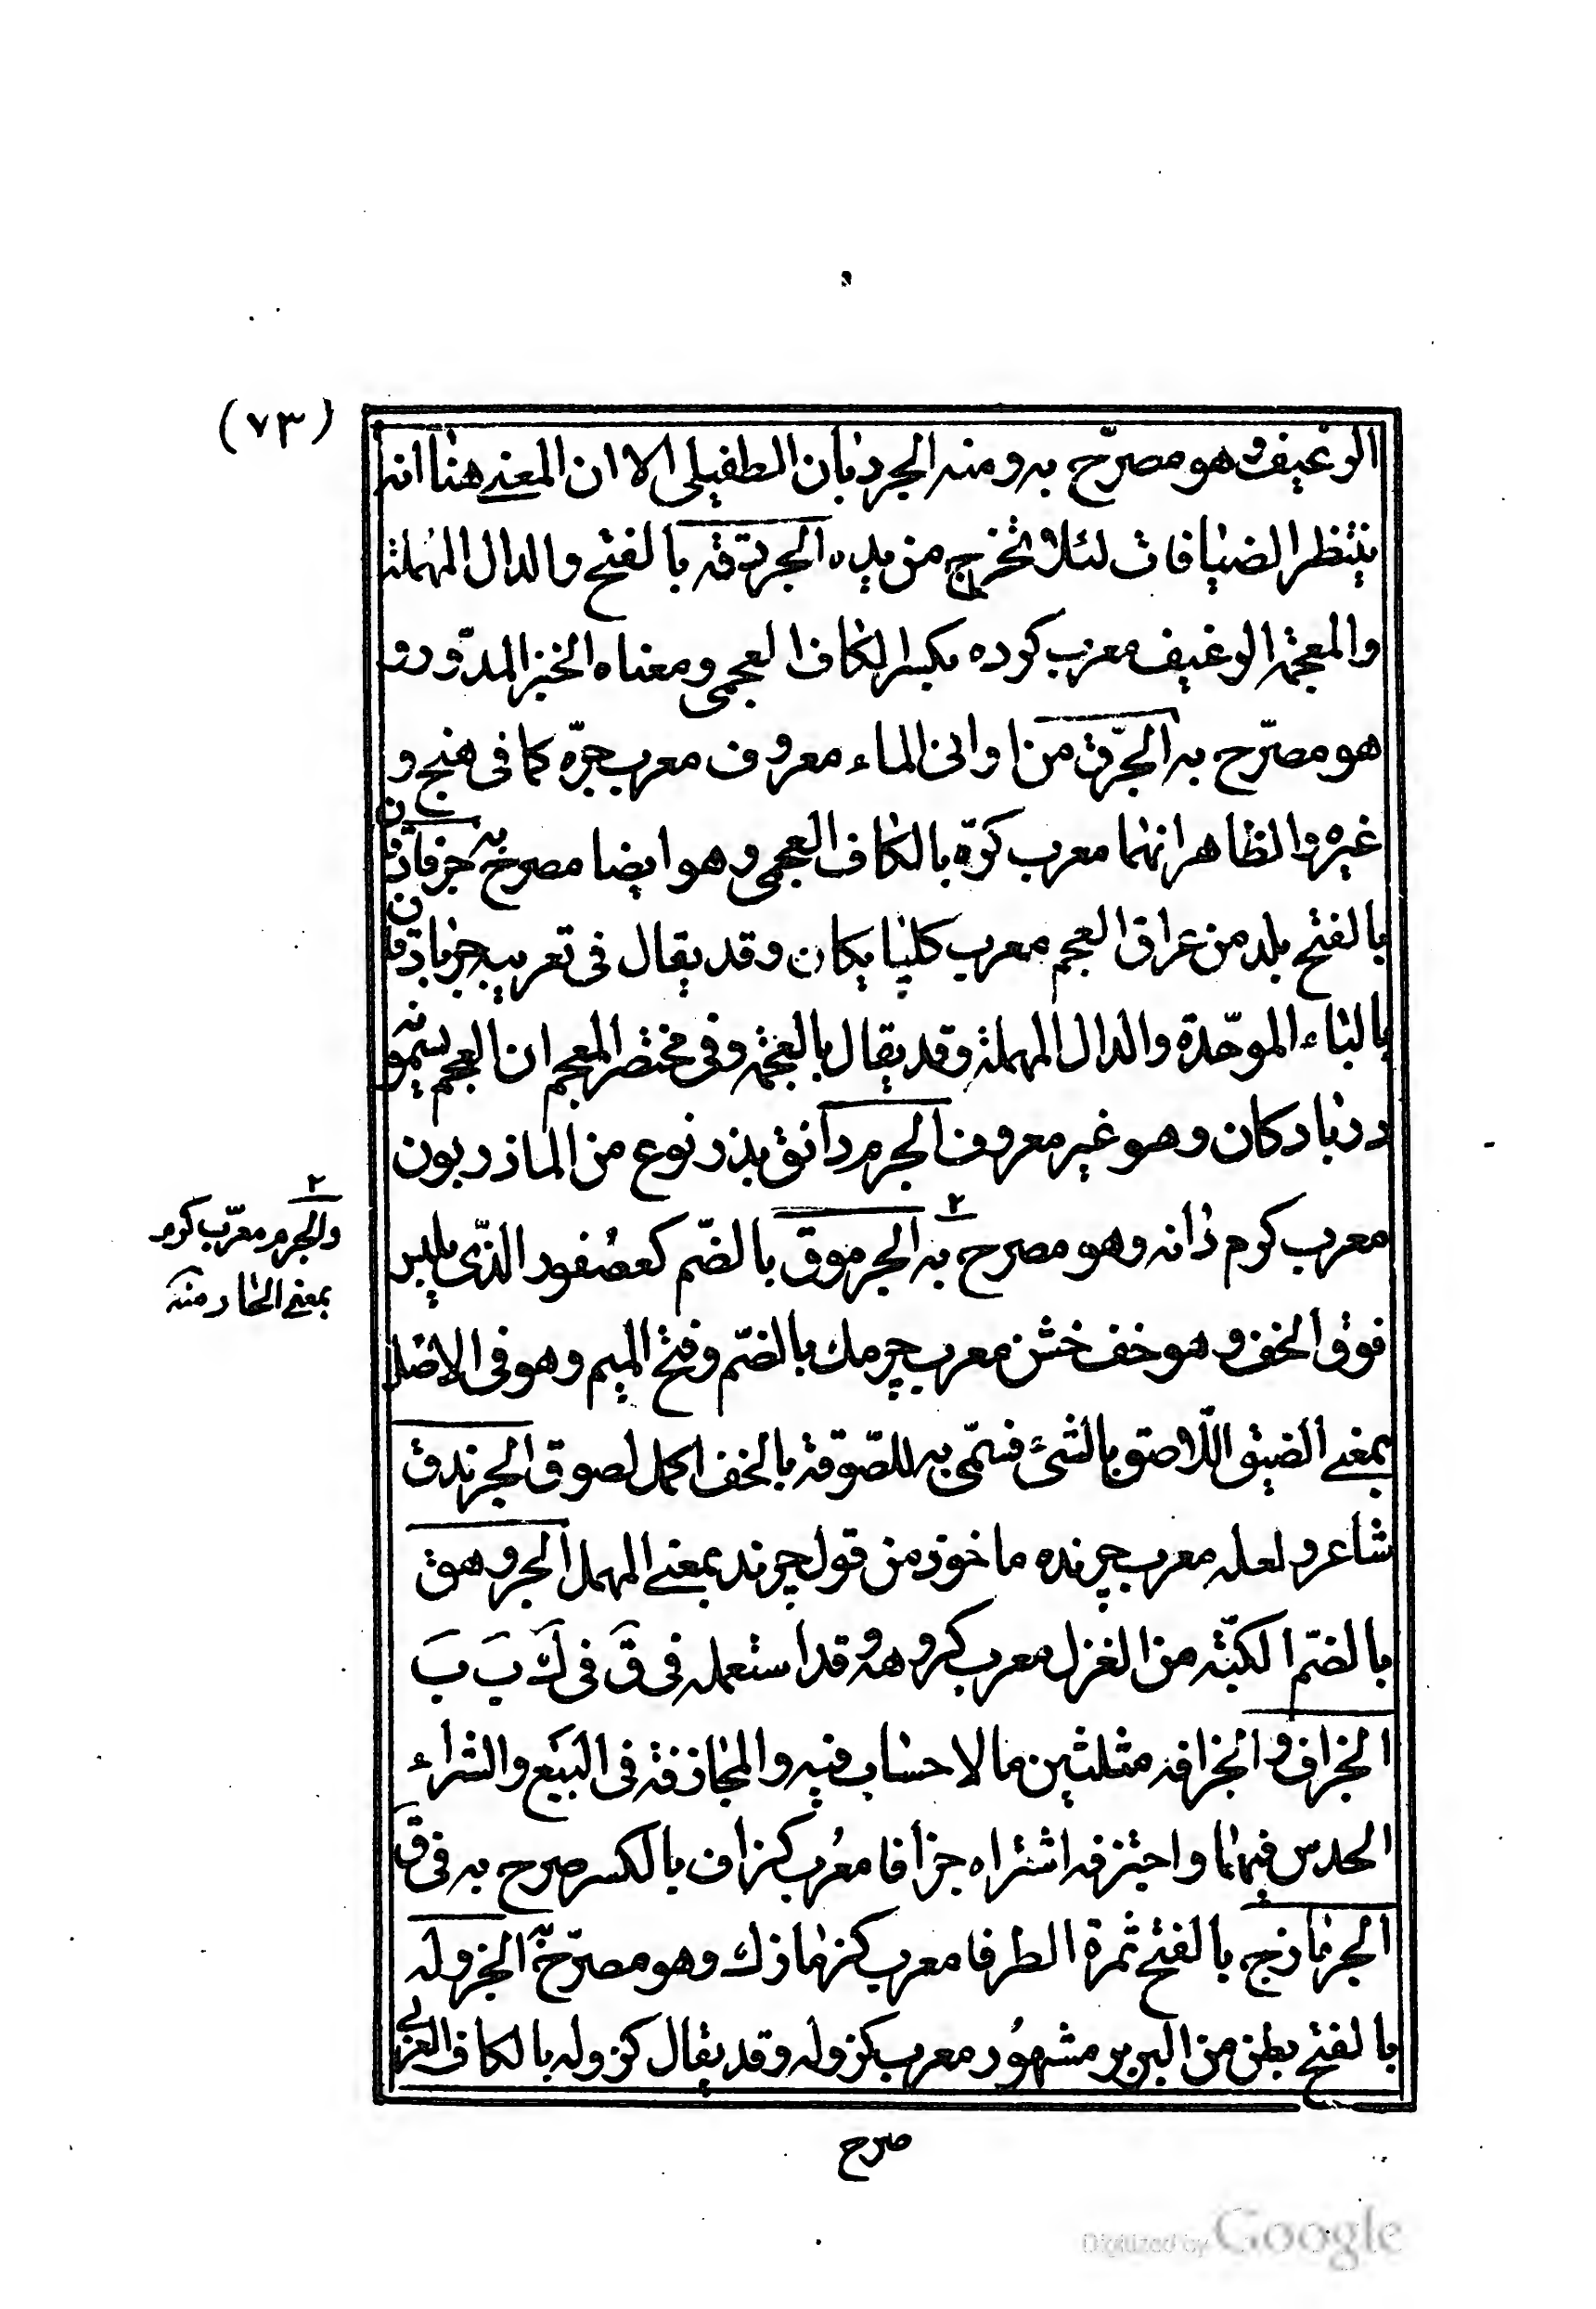 (٧٣)
الرغيف وهو مصرّح به ومنه الجردبان الطفيلى الا ان المعنى هنا انه
ينتظر الضيافات لئلا تخرج من يده الجردقة بالفتح والدال المهملة
والمعجمة الرغيف معرب كرده بكسر الكاف العجمى ومعناه الخبز المدّور و
هو مصرّح به الجرّة من اوانى الماء معروف معرب جرّه كما فى هنج و
غيره والظاهر انهما معرب كرّه بالكاف العجمى وهو ايضا مصرح به جرفادقان
بالفتح بلد من عراق العجم معرب كلپايكان وقد يقال فى تعريبه جربادقان
بالباء الموحّدة والدال المهملة وقد يقال بالعجمة وفى مختصر المعجم ان العجم يسمّونه
دربادكان وهو غير معروف الجرم دانق بذر نوع من الماذريون
معرب كرم دانه وهو مصرح به الجرموق بالضّم كعصفور الذّى يلبس
فوق الخف وهو خف خشن معرب چرمك بالضّم وفتح الميم وهو فى الاصل
بمعنى الضيق اللّاصق بالشئ فسمّى به للصّوقه بالخف اكمل لصوق الجرندق
شاعر ولعله معرب چرنده ماخوذ من قول چرند بمعنى المهمل الجروهق
بالضّم الكبّة من الغزل معرب كروهه وقد استعمله فى قَ فى كَ بَ بَ
الجزاف والجزافه مثلثين مالا حساب فيه والمجازفة فى البَيع والشراء
الحدس فيهما واجتزفه اشتراه جزافا معُرب كزاف بالكسر صرح به فى قَ
الجزمازج بالفتح ثمرة الطرفا معرب كزمازك وهو مصرّح به الجزوله
بالفتح بطن من البربر مشهُور معرب كزوله وقد يقال كزوله بالكاف العربى
٢
والجرم معرّب كرم
بمعنى الحار منه
صرح
Digitized by Google